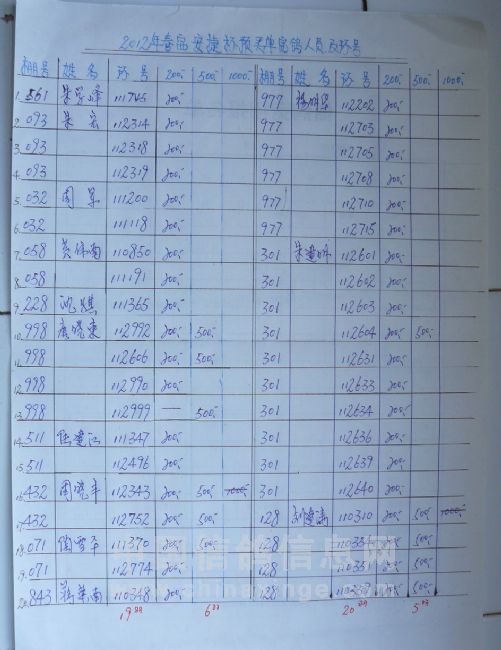 2012年春富安捷杯预关单富鸽人员及环号
棚号 姓名 环号 200.- 500.- 1000.- 棚号 姓名 环号 200.- 500.- 1000.-
1. 561 111745 200.- 977 112202 200.-
2. 093 朱宏 112314 200.- 977 112703 200.-
3. 093 112318 200.- 977 112705 200.-
4. 093 112319 200.- 977 112708 200.-
5. 032 周军 111200 200.- 977 112710 200.-
6. 032 111118 200.- 977 112715 200.-
7. 058 110850 200.- 301 朱建明 112601 200.-
8. 058 111191 200.- 301 112602 200.-
9. 228 111365 200.- 301 112603 200.-
10. 998 唐晓东 112992 200.- 500.- 301 112604 200.- 500.-
11. 998 112606 200.- 500.- 301 112631 200.-
12. 998 112990 200.- 301 112633 200.-
13. 998 112999 — 500.- 301 112634 200.-
14. 511 陆建江 111347 200.- 301 112636 200.-
15. 511 112496 200.- 301 112639 200.-
16. 432 周晓丰 112343 200.- 500.- 1000.- 301 112640 200.-
17. 432 112752 200.- 500.- 128 110310 200.- 500.- 1000.-
18. 071 陶雪平 111370 200.- 500.- 128 110334 200.- 500.-
19. 071 112774 200.- 128 110331 200.- 500.-
20. 843 110348 200.- 500.- 128 110337 200.- 500.-
19 6 20 5